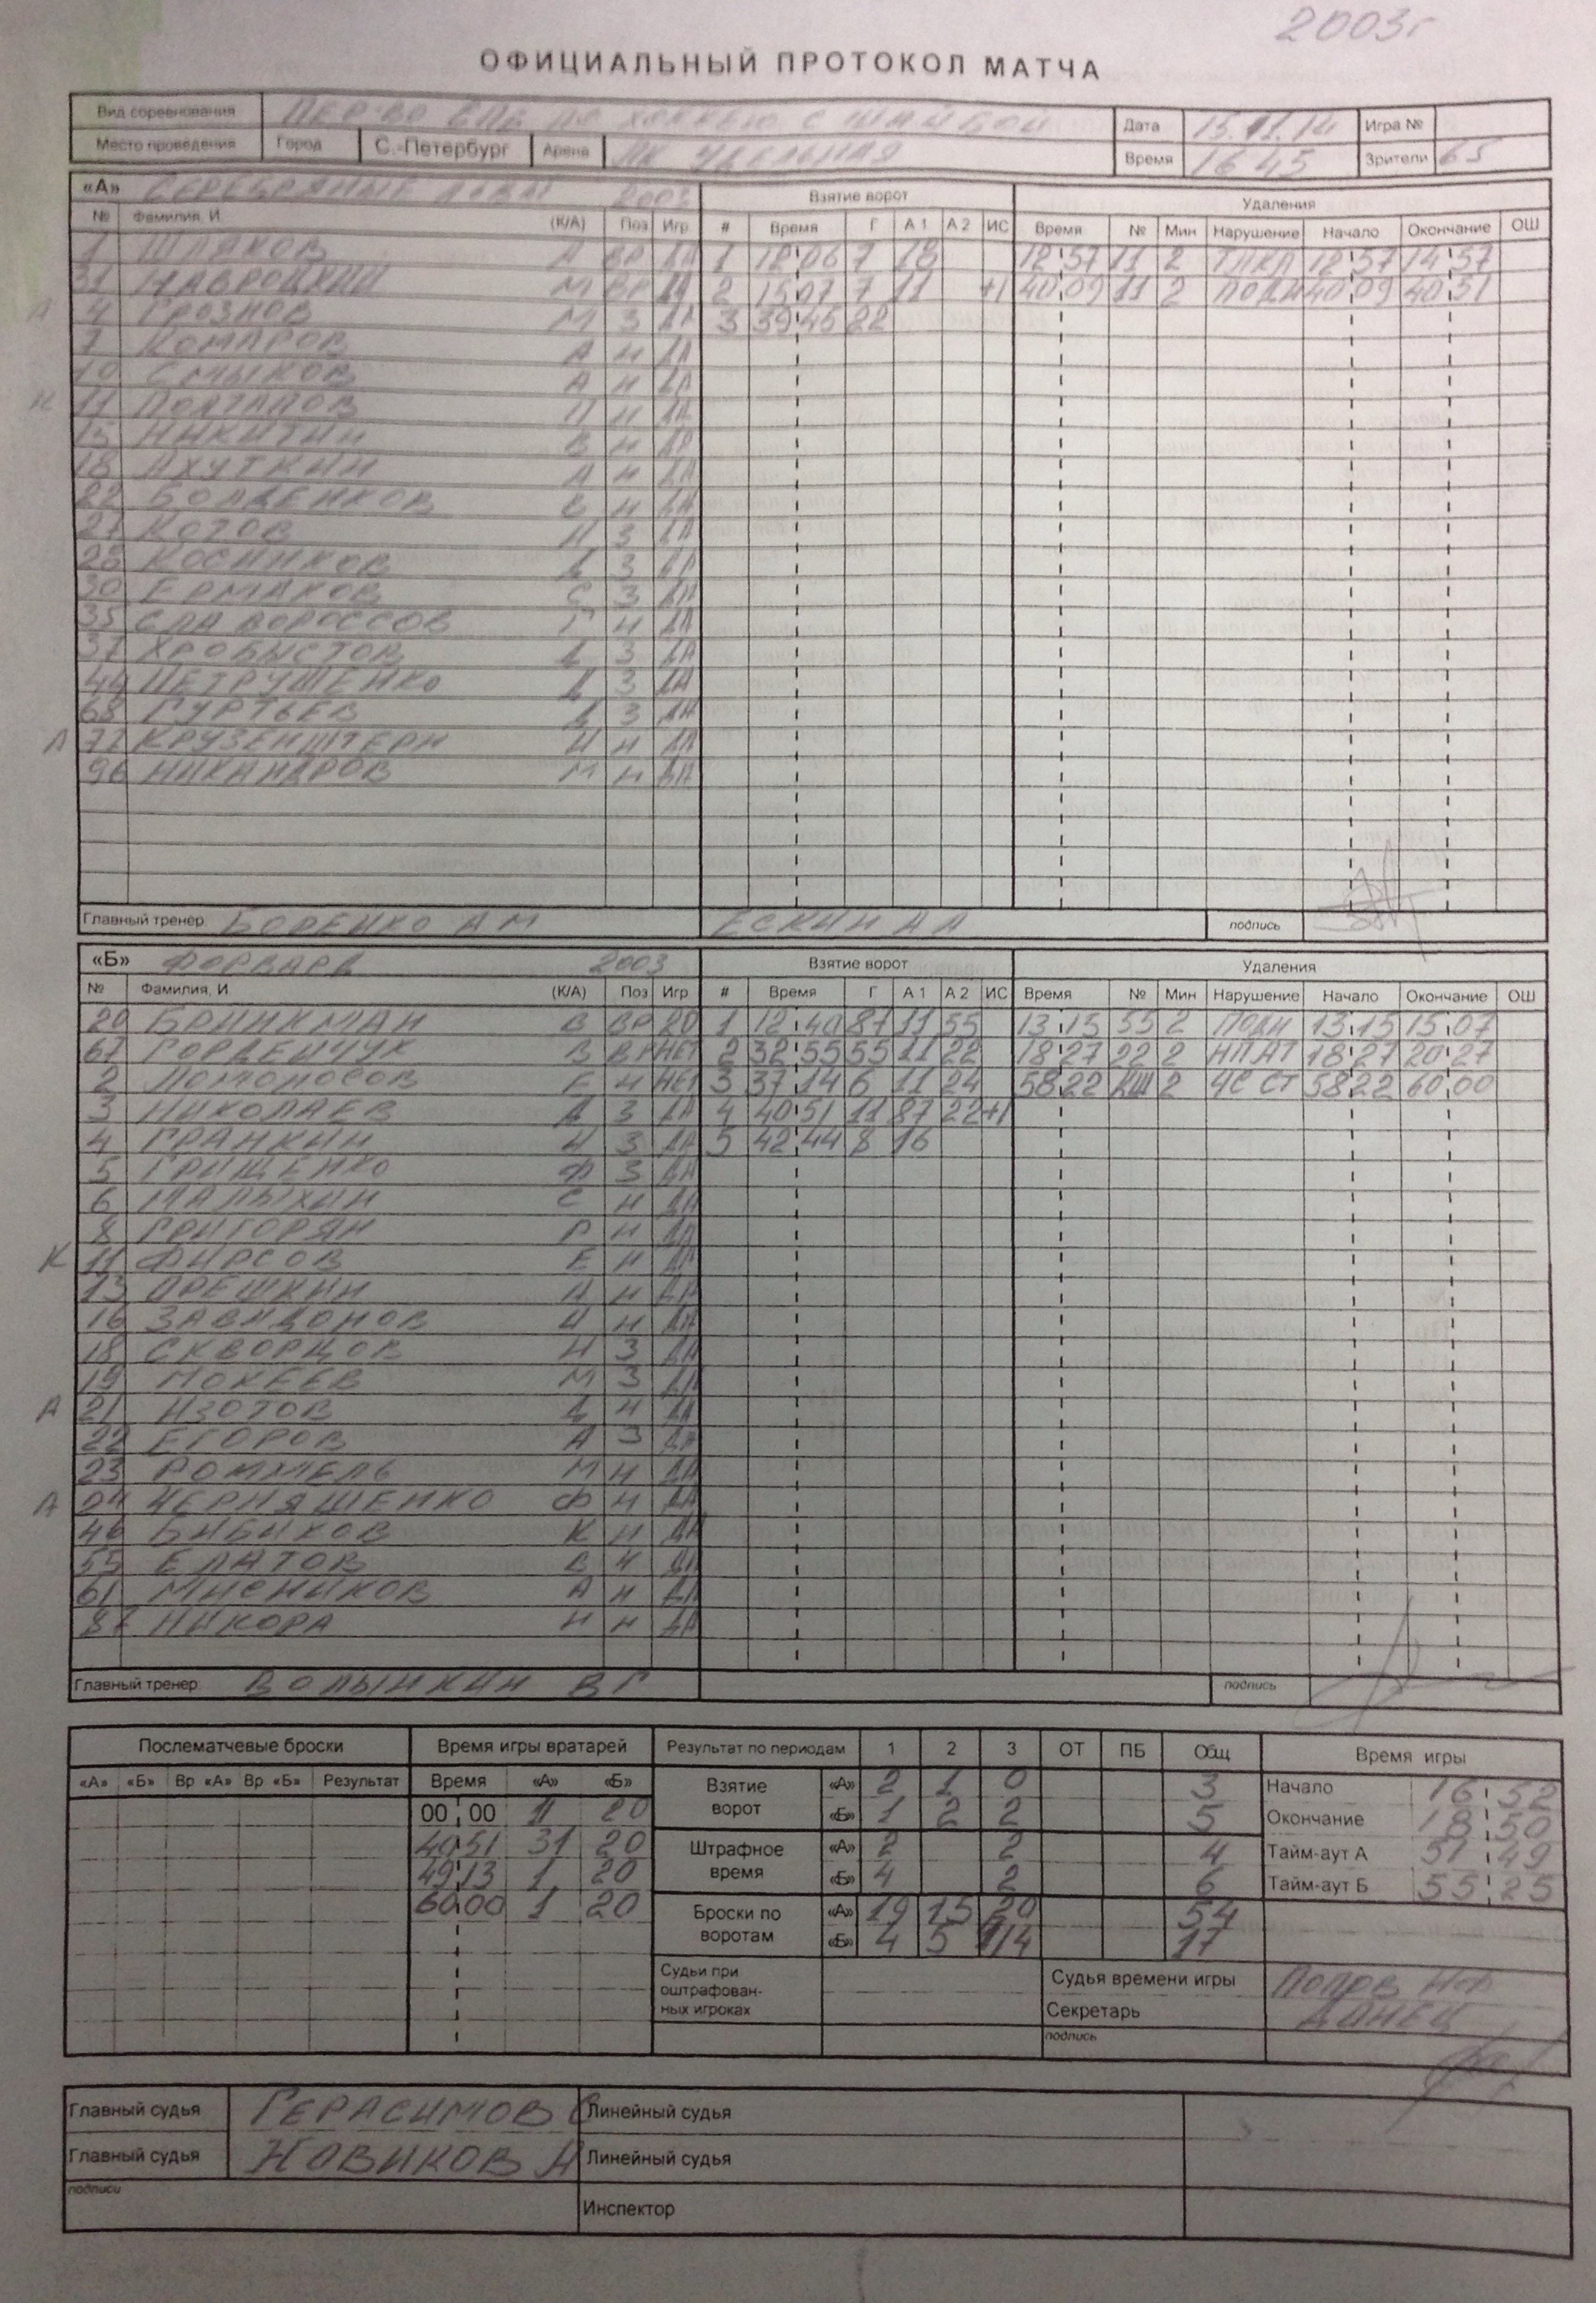 2003г
ОФИЦИАЛЬНЫЙ ПРОТОКОЛ МАТЧА
Вид соревнования ПЕР-ВО СПБ ПО ХОККЕЮ С ШАЙБОЙ Дата 15.11.14 Игра №
Место проведения Город С.-Петербург Арена ЛК УДЕЛЬНАЯ Время 16 45 Зрители 65
«А» СЕРЕБРЯНЫЕ ЛЬВЫ 2003 Взятие ворот Удаления
№ Фамилия, И. (К/А) Поз Игр # Время Г А 1 А 2 ИС Время № Мин Нарушение Начало Окончание ОШ
1 ШЛЯКОВ А ВР ДА 1 12:06 7 18 12:57 11 2 12:57 14:57
31 НАВРОЦКИЙ М ВР ДА 2 15 07 7 11 +1 40:09 11 2 ПОДН 40:09 40:51
А 4 ГРОЗНОВ М З ДА 3 39:45 22
7 КОМАРОВ А Н ДА
10 СМЫКОВ А Н ДА
К 11 ПОЛТАПОВ П Н ДА
15 НИКИТИН В Н ДА
18 АХУТКИН А Н ДА
22 БОЛДЕНКОВ В Н ДА
27 КОТОВ Н З ДА
28 КОСИНКОВ Д З ДА
30 ЕРМАКОВ С З ДА
35 СЛАВОРОССОВ Г Н ДА
37 ХРОБЫСТОВ Д З ДА
44 ПЕТРУШЕНКО Д З ДА
68 ГУРТЬЕВ Д З ДА
А 77 КРУЗЕНШТЕРН И Н ДА
96 НИКАНДРОВ М Н ДА
Главный тренер БОРЕНКО А М ЕСКИН А Л подпись
«Б» ФОРВАРД 2003 Взятие ворот Удаления
№ Фамилия, И. (К/А) Поз Игр # Время Г А 1 А 2 ИС Время № Мин Нарушение Начало Окончание ОШ
20 БРИНКМАН В ВР 20 1 12:40 87 11 55 13:15 55 2 ПОДН 13:15 15:07
67 ГОРДЕЙЧУК В ВР НЕТ 2 32:55 55 11 22 18:27 22 2 НП АТ 18:27 20:27
2 ЛОМОНОСОВ Е Н НЕТ 3 37 14 6 11 24 58 22 КШ 2 ЧС СТ 58 22 60:00
3 НИКОЛАЕВ Д З ДА 4 40:51 11 87 22 +1
4 ГРАНКИН И З ДА 5 42 44 8 16
5 ГРИЩЕНКО Ф З ДА
6 МАЛЫХИН С Н ДА
8 ГРИГОРЯН Р Н ДА
К 11 ФИРСОВ Е Н ДА
13 ОРЕШКИН И Н ДА
16 ЗАВИДОНОВ И Н ДА
18 СКВОРЦОВ Н З ДА
19 МОКЕЕВ М З ДА
А 21 ИЗОТОВ Д Н ДА
22 ЕГОРОВ А З ДА
23 РОММЕЛЬ М Н ДА
А 24 ЧЕРНЯШЕНКО Ф Н ДА
46 БИБИКОВ К Н ДА
55 ЕЛАТОВ В Н ДА
61 МЯСНИКОВ А Н ДА
87 НИКОРА Н Н ДА
Главный тренер: ВОЛЫНКИН В Г подпись
Послематчевые броски Время игры вратарей Результат по периодам 1 2 3 ОТ ПБ Общ Время игры
«А» «Б» Вр «А» Вр «Б» Результат Время «А» «Б»
Взятие ворот «А» 2 1 0 3 Начало 16:52
00:00 1 20 «Б» 1 2 2 5 Окончание 18:50
40 51 31 20 Штрафное время «А» 2 2 4 Тайм-аут А 51:49
49:13 1 20 «Б» 4 2 6 Тайм-аут Б 55:25
60:00 1 20 Броски по воротам «А» 19 15 20 54
«Б» 4 5 14 17
Судьи при оштрафован-ных игроках Судья времени игры ПОПОВ
Секретарь ДАНЕЦ
подпись
Главный судья ГЕРАСИМОВ Линейный судья
Главный судья НОВИКОВ А Линейный судья
подписи
Инспектор